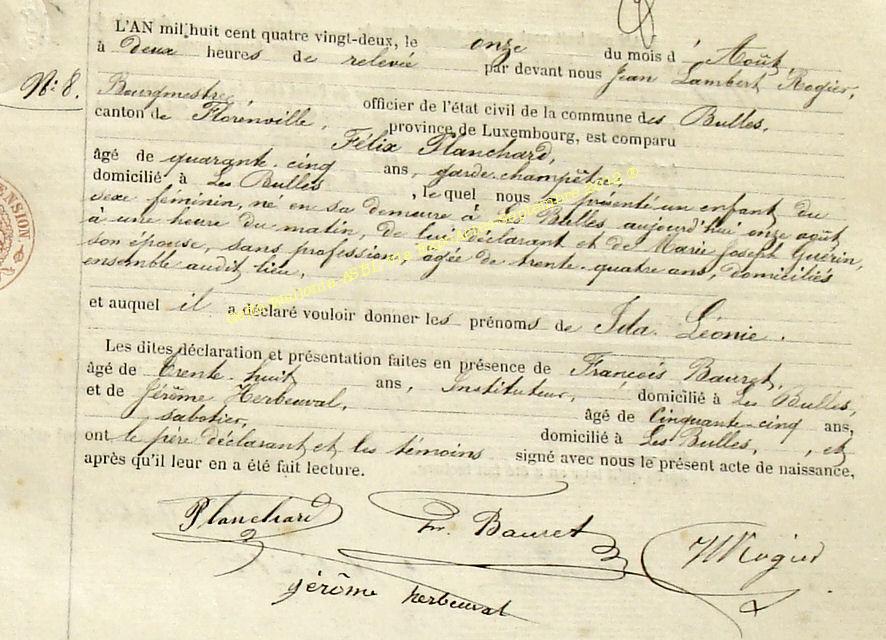 L'AN mil huit cent quatre vingt-deux, le onze du mois d'Août,
à deux heures de relevée par devant nous Jean Lambert Rogier,
N° 8.
Bourgmestre, officier de l'état civil de la commune des Bulles,
canton de Florenville, province de Luxembourg, est comparu
Félix Planchard,
âgé de quarante-cinq ans, garde-champêtre,
domicilié à Les Bulles, lequel nous a présenté un enfant du
sexe féminin, né en sa demeure à Les Bulles aujourd'hui onze août
à une heure du matin, de lui déclarant et de Marie Joseph Guérin,
son épouse, sans profession, âgée de trente-quatre ans, domiciliés
ensemble audit lieu,
et auquel il a déclaré vouloir donner les prénoms de Ida Léonie.
Les dites déclaration et présentation faites en présence de François Bauret,
âgé de trente-huit ans, Instituteur, domicilié à Les Bulles,
et de Jérôme Herbeuval, âgé de Cinquante-cinq ans,
sabotier, domicilié à Les Bulles, et
ont le père déclarant et les témoins signé avec nous le présent acte de naissance,
après qu'il leur en a été fait lecture.
Planchard Fr. Bauret Rogier
jérôme herbeuval